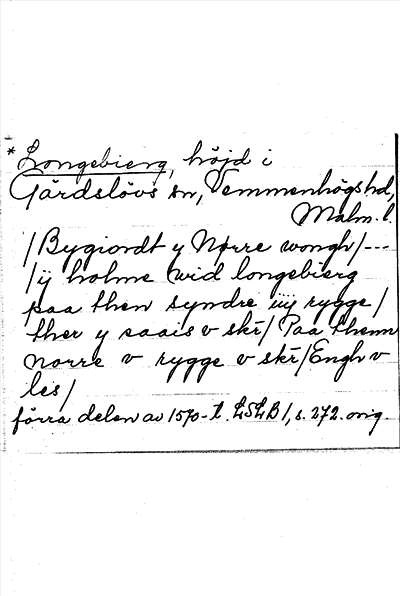 * Longebierg, höjd i
Gärdslövs sn, Vemmenhögs hd,
Malm. l.
/Bygiordt y Nørre wongh/---
/ij holme wid longebierg
paa then syndre iiij rygge/
ther y saais v skr̄/ Paa themn
norre v rygge v skr̄/Engh v
les/
förra delen av 1570-t. LSLB 1, s. 272. orig.